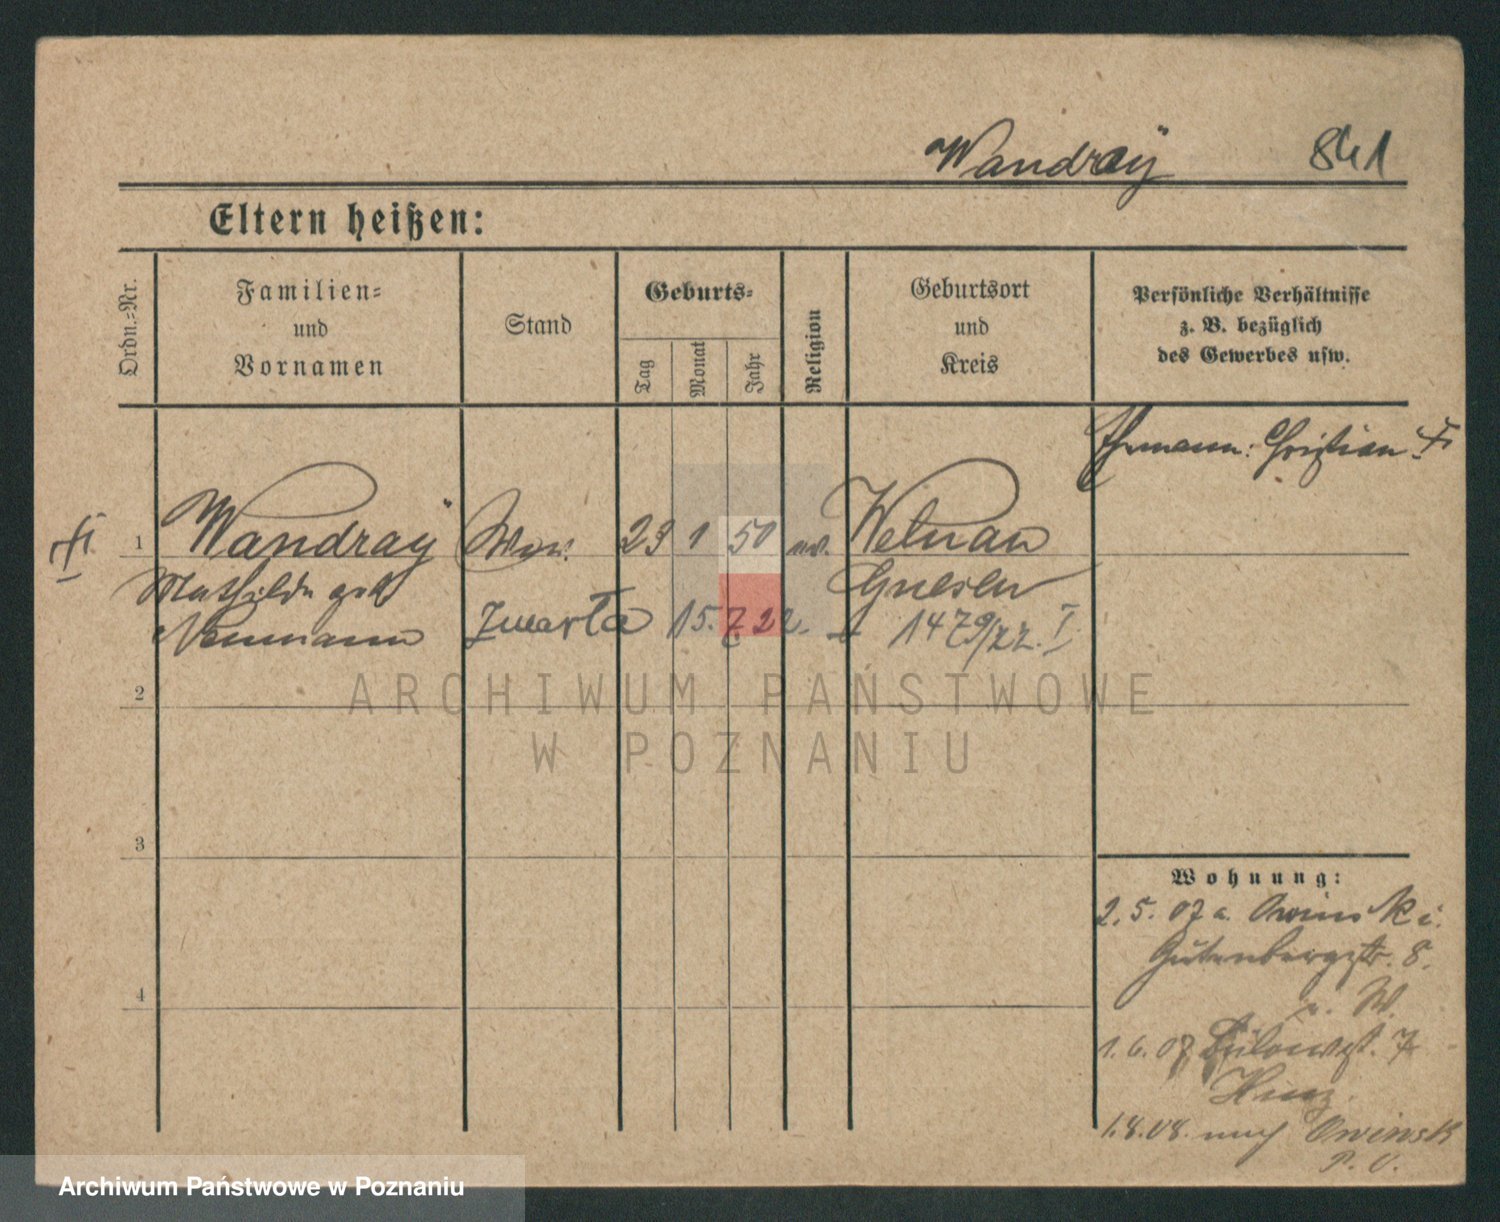 Wandraÿ 841
Eltern heißen:
Ordn.-Nr.
Familien-
und
Vornamen
Stand
Geburts-
Tag
Monat
Jahr
Religion
Geburtsort
und
Kreis
Persönliche Verhältnisse
z. B. bezüglich
des Gewerbes usw.
Ehemann: Christian †
1 Wandraÿ Ww. 23 1 50 ev. Welnau
Mathilde geb. Gnesen
Neumann Zmarła 15.7.22. 1479/22. I
2
ARCHIWUM PAŃSTWOWE
W POZNANIU
3
4
Wohnung:
2.5.07 a. Owinski
Gutenbergstr. 8.
v. W.
1.6.07 Bülowst. 7
Hinz.
1.8.08. nach Owinsk
P. O.
Archiwum Państwowe w Poznaniu